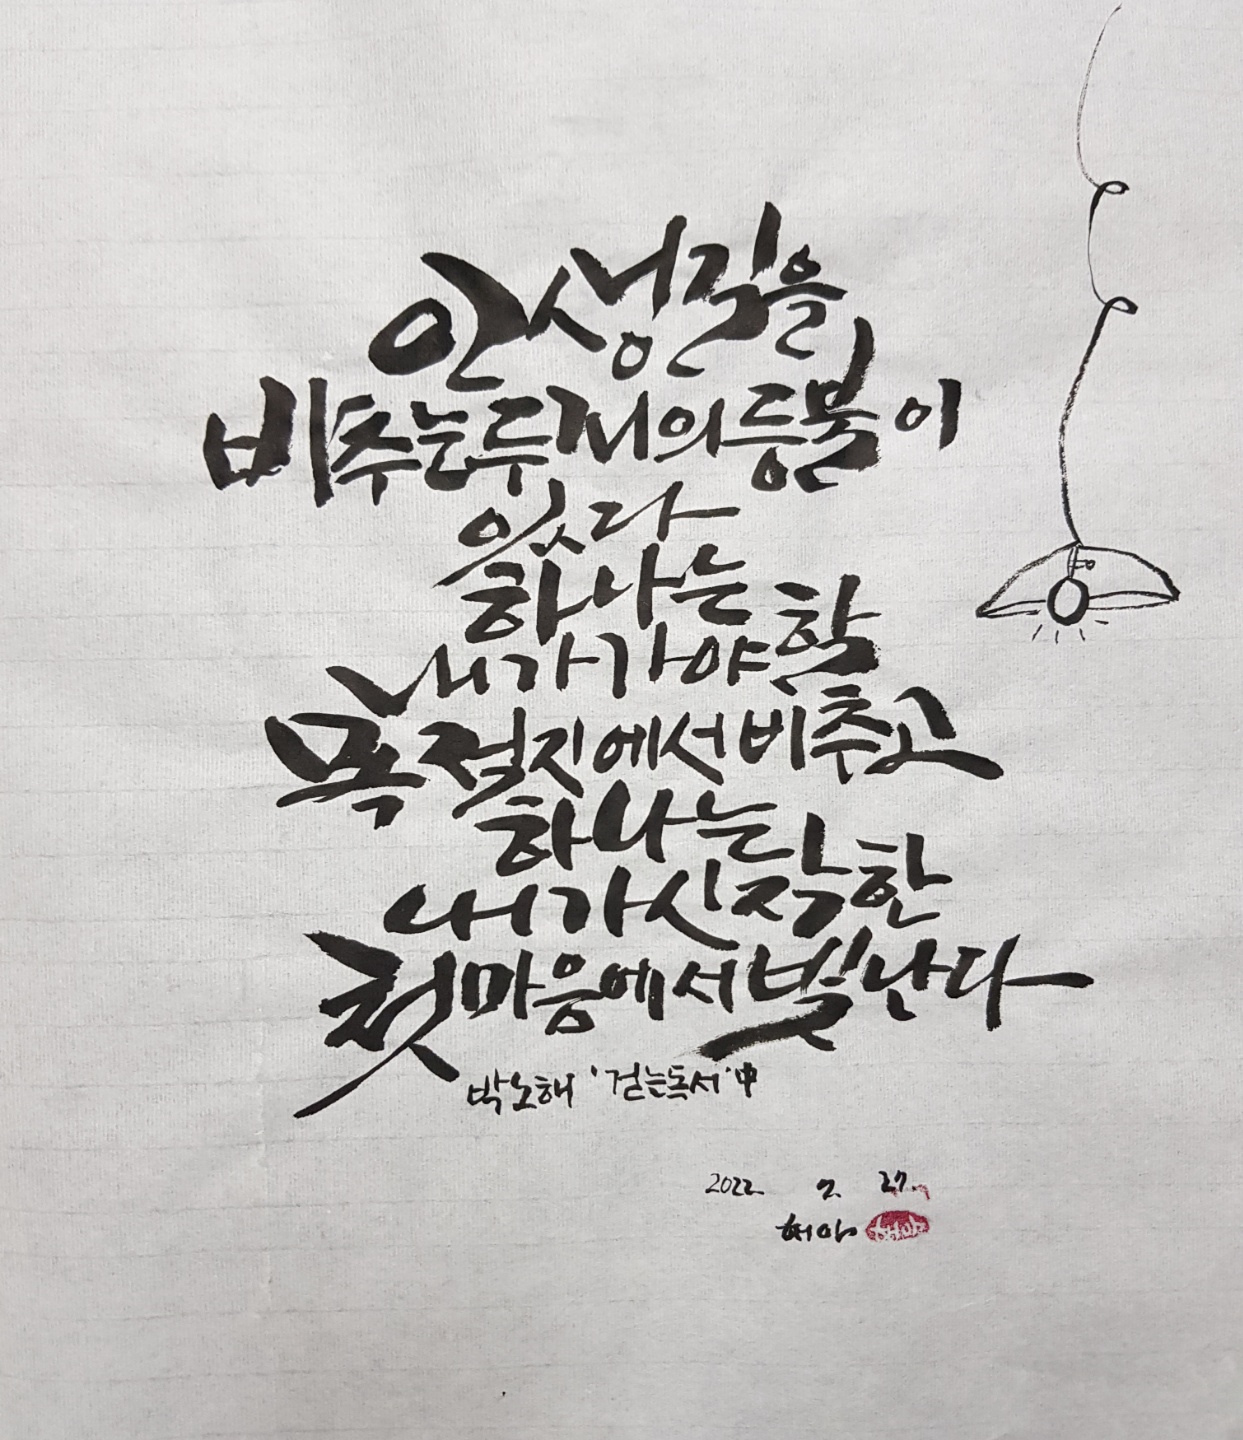 인생길을
비추는 두 개의 등불이
있다
하나는
내가 가야 할
목적지에서 비추고
하나는
내가 시작한
첫마음에서 빛난다
박노해 '걷는독서' 中
2022. 7. 27.
혜야